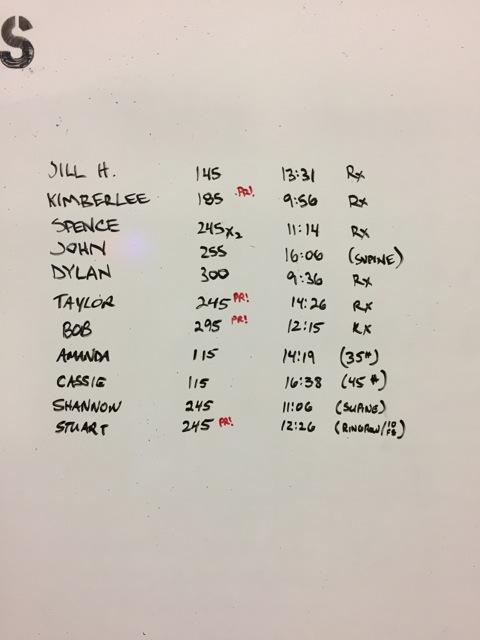 S
JILL H. 145 13:31 Rx
KIMBERLEE 185 PR! 9:56 Rx
SPENCE 245x2 11:14 Rx
JOHN 255 16:06 (SUPINE)
DYLAN 300 9:36 Rx
TAYLOR 245 PR! 14:26 Rx
BOB 295 PR! 12:15 Rx
AMANDA 115 14:19 (35#)
CASSIE 115 16:38 (45#)
SHANNON 245 11:06
STUART 245 PR! 12:26